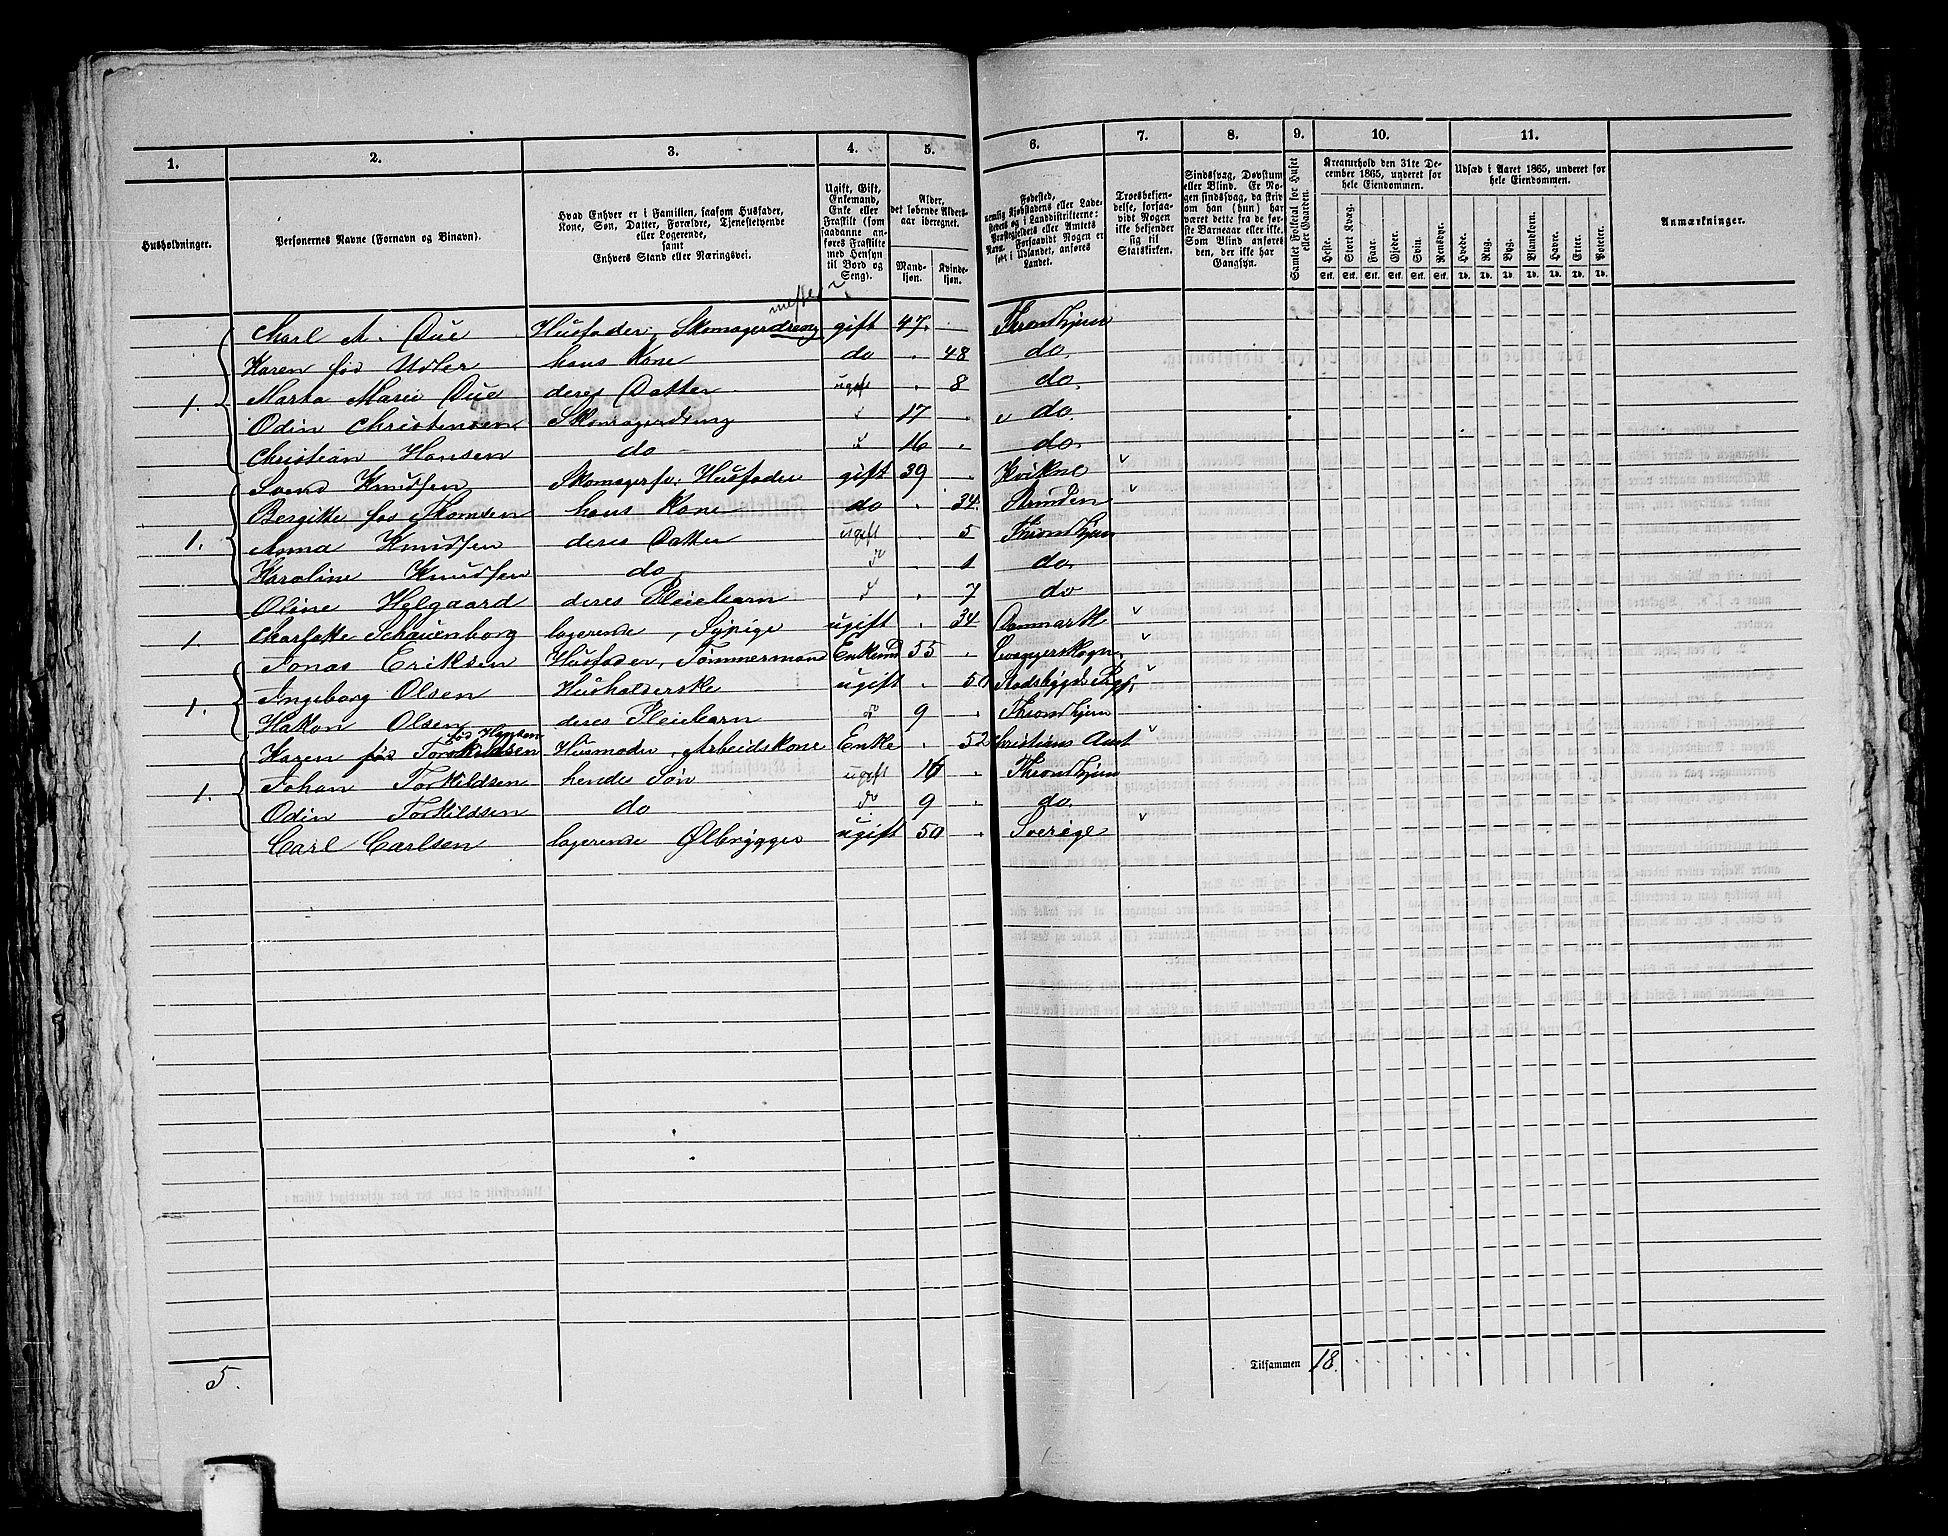 1. 2. 3. 4. 5. 6. 7. 8. 9. 10. 11.
Husholdninger.
Personernes Navne (Fornavn og Binavn).
Hvad Enhver er i Familien, saasom Husfader,
Kone, Søn, Datter, Forældre, Tjenestetyende
eller Logerende,
samt
Enhvers Stand eller Næringsvei.
Ugift, Gift,
Enkemand,
Enke eller
Fraskilt (som
saadanne an-
føres Fraskilte
med Hensyn
til Bord og
Seng).
Alder,
det løbende Alders-
aar iberegnet.
Mand-
kjøn.
Kvinde-
kjøn.
Fødested,
nemlig Kjøbstadens eller Lade-
stedets og i Landdistrikterne:
Præstegjeldets eller Amtets
Navn. Forsaavidt Nogen er
født i Udlandet, anføres
Landet.
Troesbekjen-
delse, forsaa-
vidt Nogen
ikke bekjender
sig til
Statskirken.
Sindssvag, Døvstum
eller Blind. Er No-
gen sindssvag, da skriv
om han (hun) har
været dette fra de før-
ste Barneaar eller ikke.
Som Blind anføres
den, der ikke har
Gangsyn.
Samlet Folketal for Huset
eller Gaarden.
Kreaturhold den 31te De-
cember 1865, underet for
hele Eiendommen.
Heste. Stort Kvæg. Faar. Gjeder. Svin. Rensdyr.
Stk. Stk. Stk. Stk. Stk. Stk.
Udsæd i Aaret 1865, underet for
hele Eiendommen.
Hvede. Rug. Byg. Blandkorn. Havre. Erter. Poteter.
Td. Td. Td. Td. Td. Td. Td.
Anmærkninger.
mester
A. Due Husfader, Skomagerdreng gift 47. Throndhjem
Karen fød hans Kone do . 48 do.
1. Marta Marie Due deres Datter ugift . 8 do.
Odin Christensen Skomagerdreng 17 . do.
Christian Hansen do 16 . do.
Svend Knudsen Skomagersv: Husfader gift 39 . Kvikne
Bergitte fød hans Kone do . 34. Strinden
1. Anna Knudsen deres Datter ugift . 5 Throndhjem
Karoline Knudsen do do . 1 do.
Oline Helgaard deres Pleiebarn . 7 do
1. Schauenborg logerende, Sypige ugift . 34 Danmark
Jonas Eriksen Husfader, Tømmermand Enkemd 55 .
1. Ingeborg Olsen Husholderske ugift . 50 Stadsbygdens Pgj.
Hakon Olsen deres Pleiebarn do 9 . Throndhjem
fød Hansen
Karen fød Torkildsen Husmoder, Arbeidskone Enke . 52 Christians Amt
1. Johan Torkildsen hendes Søn ugift 16 . Throndhjem
Odin Torkildsen do do 9 . do.
Carl Carlsen logerende Ølbrygger ugift 50 . Sverige
5. Tilsammen 18.